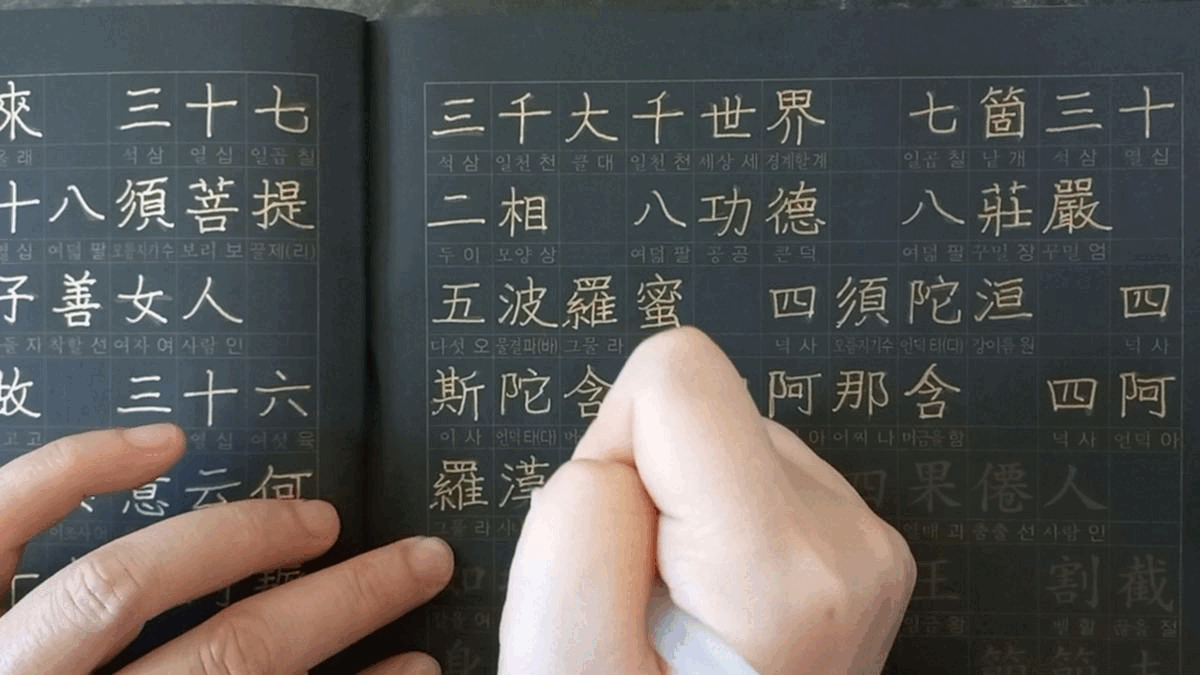 來 三十七
래 석 삼 열 십 일곱 칠
十八須菩提
열 십 여덟 팔 모름지기수 보리 보 끌제(리)
子善女人
들 자 착할 선 여자 여 사람 인
故 三十六
고 고 열 십 여섯 육
意云何
三千大千世界 七箇三十
석 삼 일천 천 클 대 일천 천 세상 세 경계한계 일곱 칠 낱 개 석 삼 열 십
二相 八功德 八莊嚴
두 이 모양 상 여덟 팔 공 공 큰 덕 여덟 팔 꾸밀 장 꾸밀 엄
五波羅蜜 四須陀洹 四
다섯 오 물결파(바) 그물 라 넉 사 모름지기수 언덕타(다) 강이름 원 넉 사
斯陀含 阿那含 四阿
이 사 언덕타(다) 아 어찌 나 머금을함 넉 사 언덕 아
羅漢 四果僊人
그물 라 열매 과 춤출 선 사람 인
如 王 割截
같을 여 임금 왕 벨 할 끊을 절
身 節節